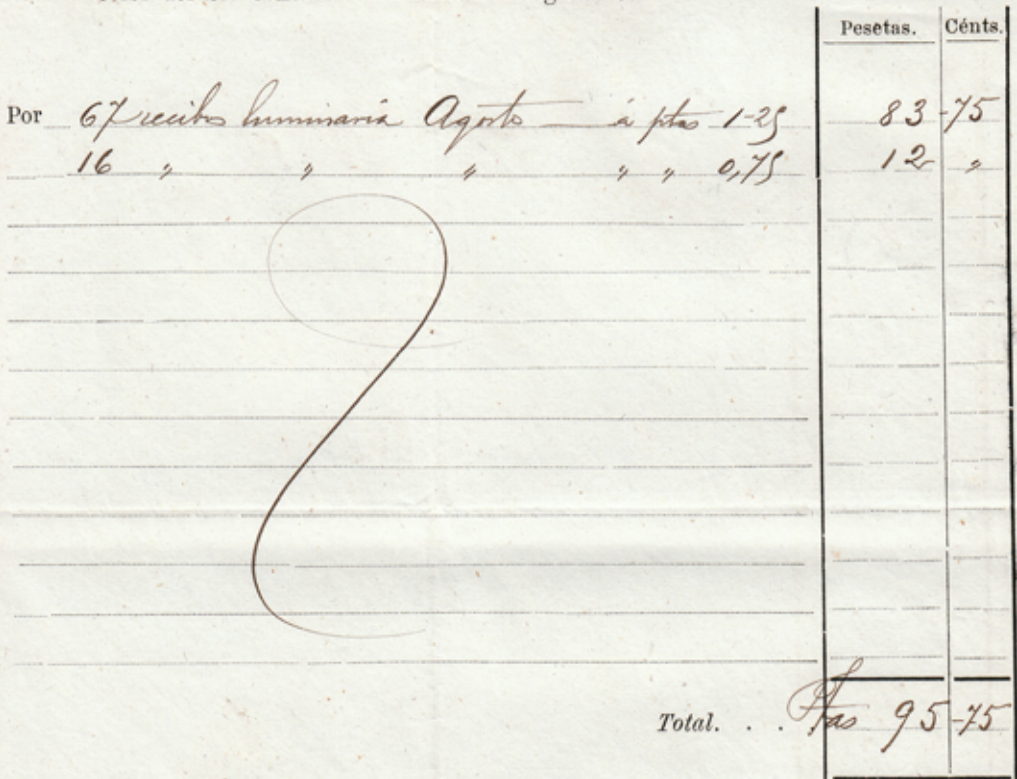 Pesetas. Cénts.
Por 67 recibos luminaria Agosto — á ptas 1-25 83-75
16 " " " " " 0,75 12 "
Total. . . Ptas 95-75